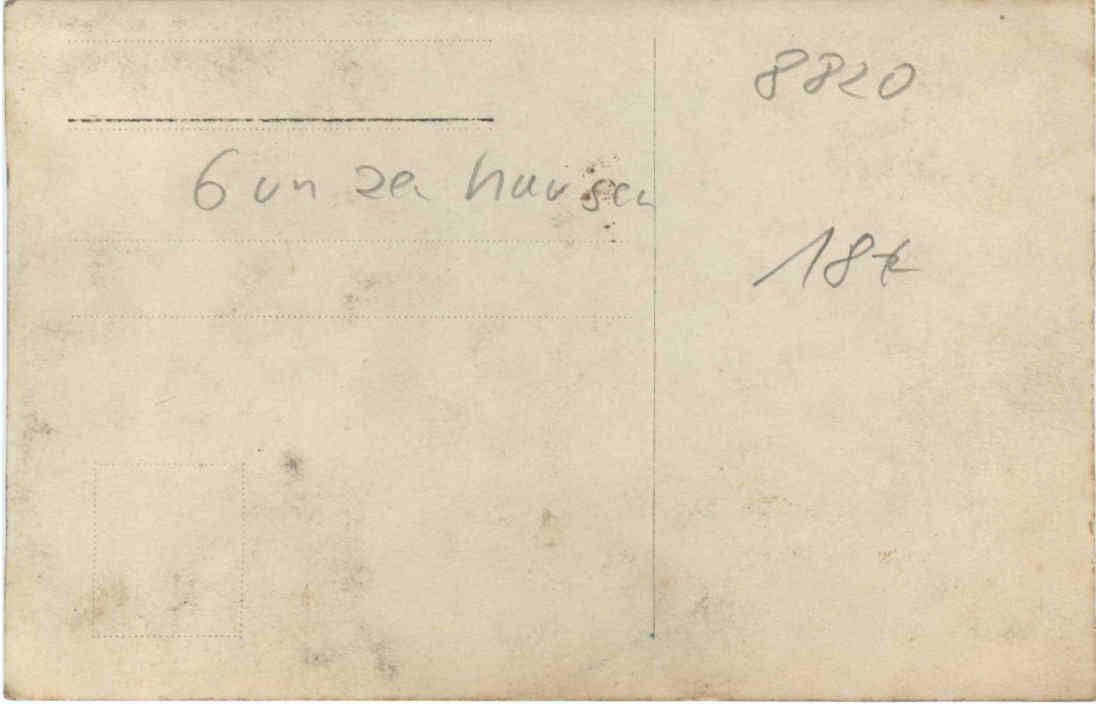 8820
Gunzenhausen
18€